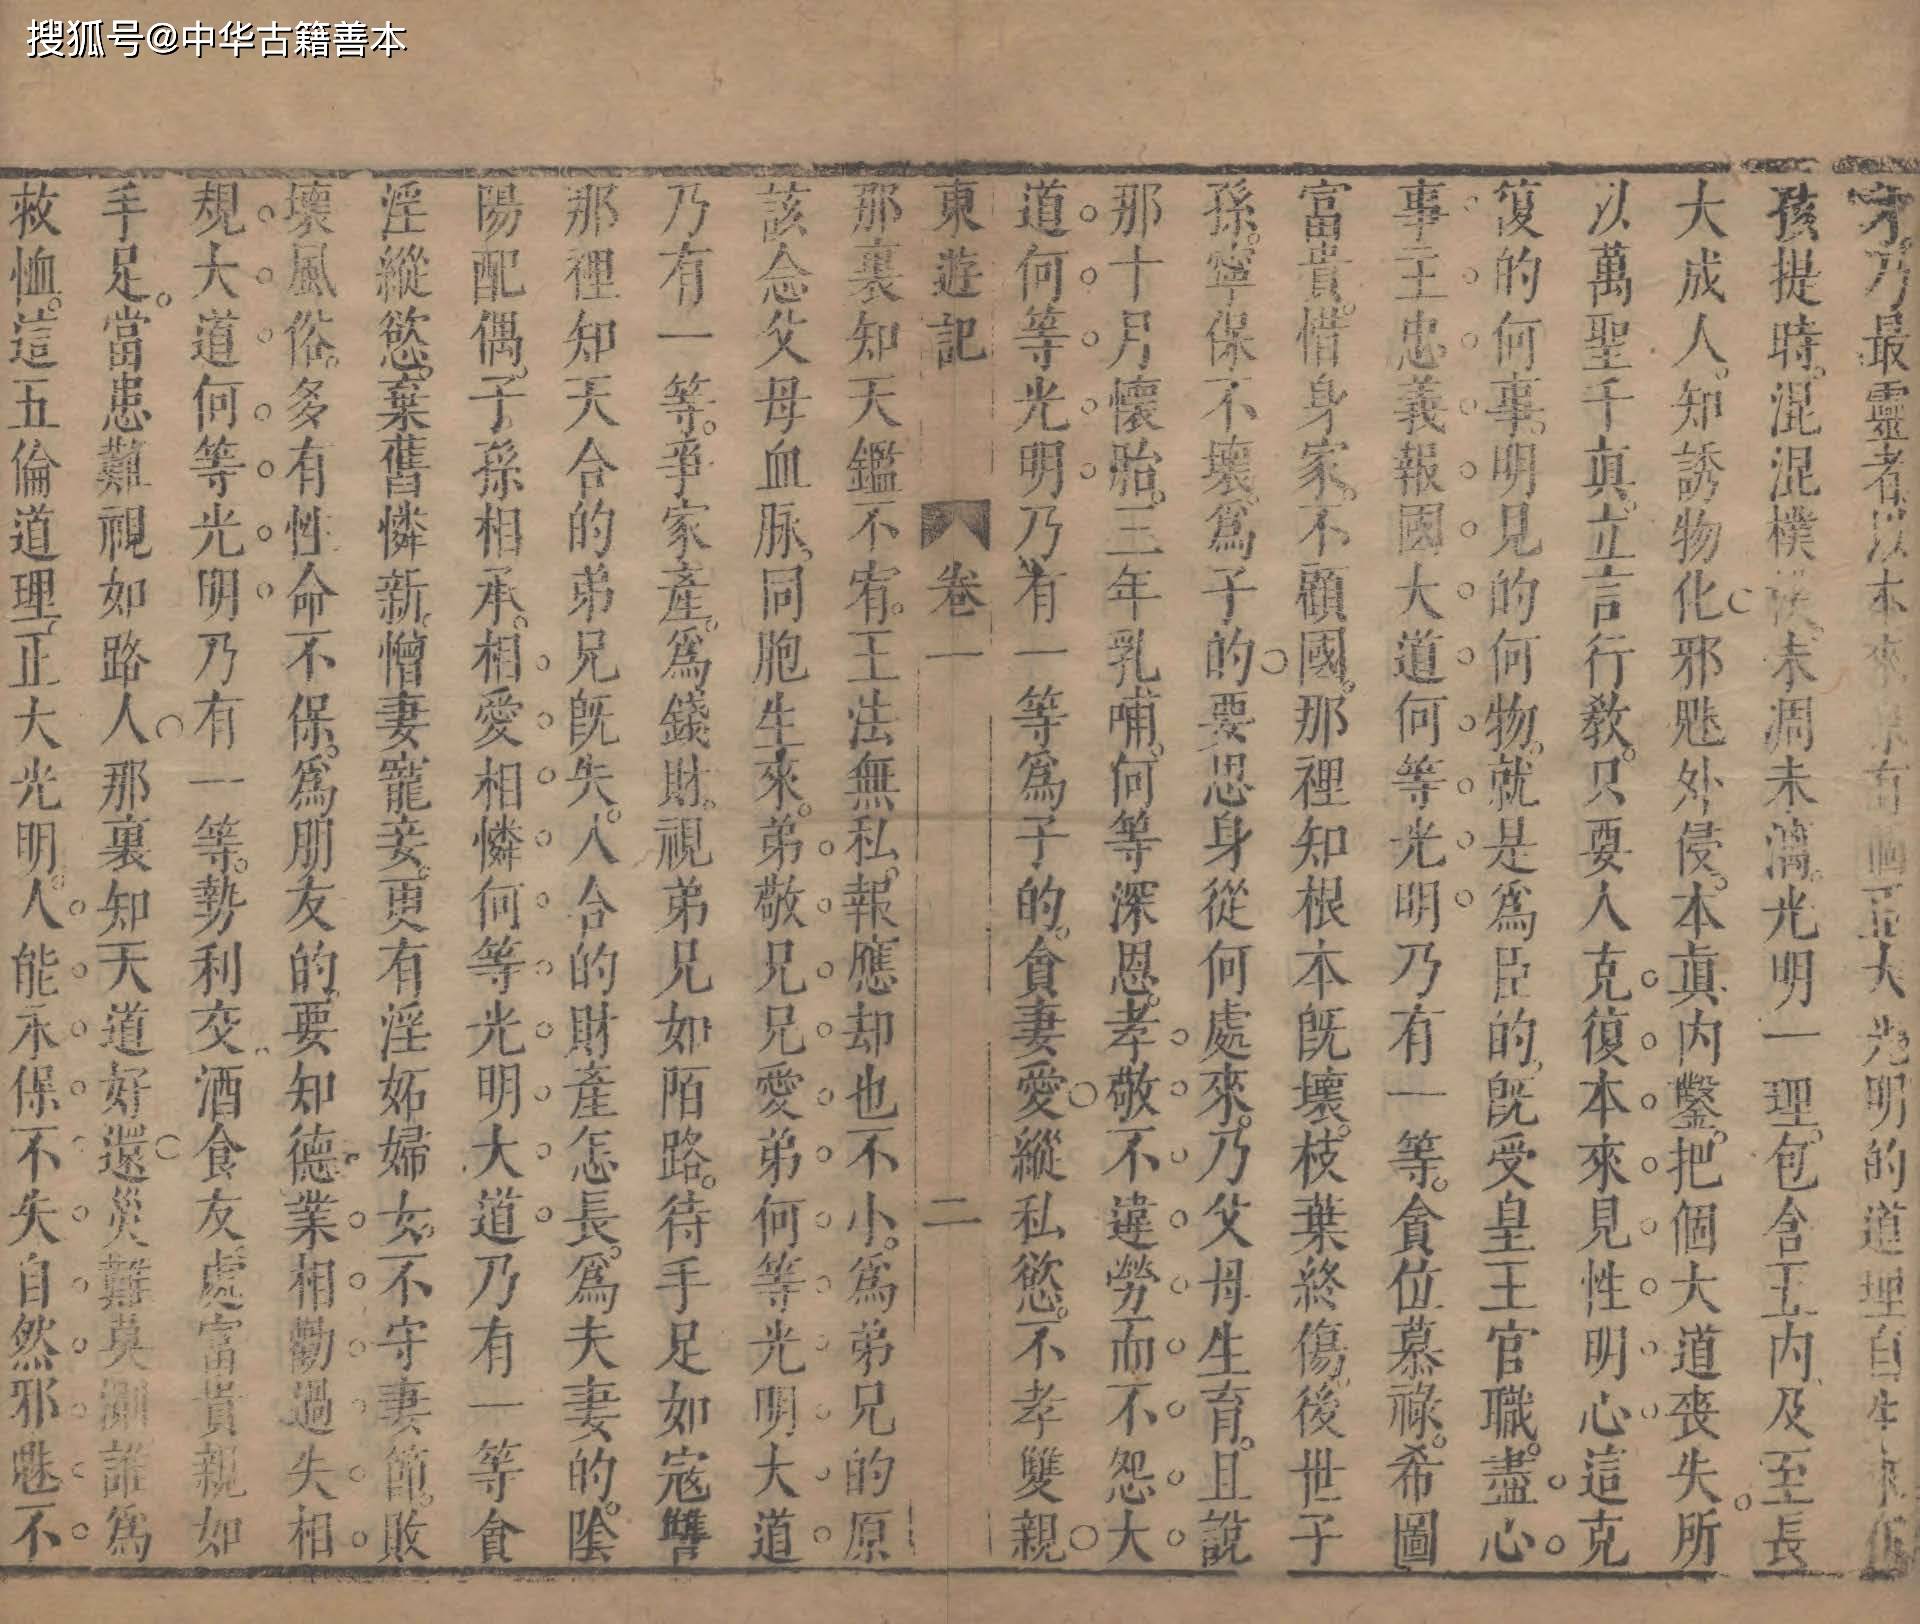 搜狐号@中华古籍善本
乃最靈者以本來原有個正大光明的道理自生來在
孩提時混混樸樸未凋未漓光明一理包含五內及至長
大成人知誘物化邪魁外侵本眞內鑿把個大道喪失所
以萬聖千眞立言行教只要人克復本來見性明心這克
復的何事明見的何物就是爲臣的旣受皇王官職盡心
事主忠義報國大道何等光明乃有一等貪位慕祿希圖
富貴惜身家不顧國那裡知根本旣壞枝葉終傷後世子
孫寧保不壞爲子的要思身從何處來乃父母生育且說
那十月懷胎三年乳哺何等深恩孝敬不違勞而不怨大
道何等光明乃有一等爲子的貪妻愛縱私慾不孝雙親
東遊記 卷一 二
那裏知天鑑不宥王法無私報應却也不小爲弟兄的原
該念父母血脉同胞生來弟敬兄兄愛弟何等光明大道
乃有一等爭家產爲錢財視弟兄如陌路待手足如寇讐
那裡知天合的弟兄旣失人合的財產怎長爲夫妻的陰
陽配偶子孫相承相愛相憐何等光明大道乃有一等貪
淫縱慾棄舊憐新憎妻寵妾更有淫妬婦女不守妻節敗
壞風俗多有性命不保爲朋友的要知德業相勸過失相
規大道何等光明乃有一等勢利交酒食友處富貴親如
手足當患難視如路人那裏知天道好還災難莫測誰爲
救恤這五倫道理正大光明人能永保不失自然邪魁不